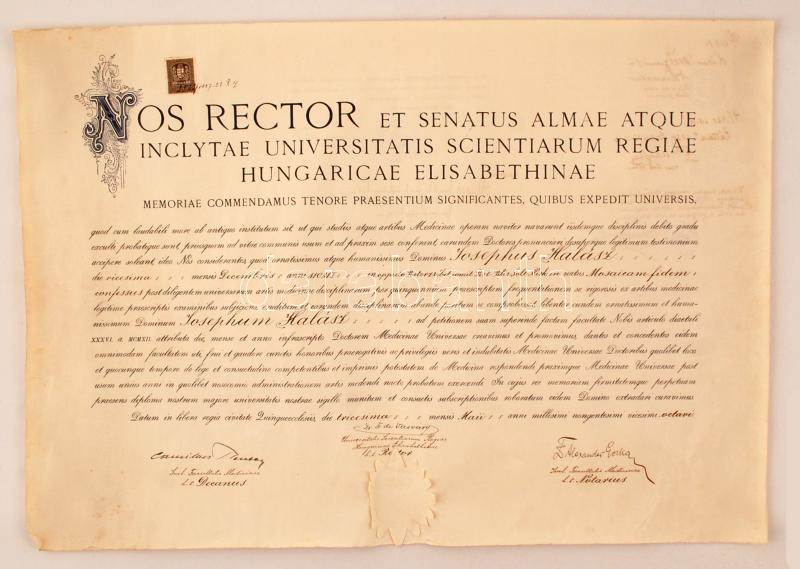 NOS RECTOR ET SENATUS ALMAE ATQUE
INCLYTAE UNIVERSITATIS SCIENTIARUM REGIAE
HUNGARICAE ELISABETHINAE
MEMORIAE COMMENDAMUS TENORE PRAESENTIUM SIGNIFICANTES, QUIBUS EXPEDIT UNIVERSIS,
quod cum laudabili more ab antiquo institutum sit, ut qui studiis atque artibus Medicinae operam naviter navarunt iisdemque disciplinis debito gradu
exculti probatique sunt, priusquam ad vitae communis usum et ad praxim sese conferant, earundem Doctores pronuncient desuperque legitimum testimonium
accipere soleant, ideo Nos considerantes, quod ornatissimus atque humanissimus Dominus Josephus Halász
die vicesima mensis Decembris anni in oppido natus Mosaicam fidem
confessus post diligentem universarum artis medicae disciplinarum per integrum annum praescriptam frequentationem se rigorosis ex artibus medicinae
legitime praescriptis examinibus subjecerit, auditum et earundem disciplinarum abunde peritum se comprobasset, libenter eundem ornatissimum et huma-
nissimum Dominum Josephum Halász ad petitionem suam superinde factam facultate Nobis articulo diaetali
XXXVI. a. MCMXII. attributa die, mense et anno infrascripto Doctorem Medicinae Universae creavimus et promovimus, dantes et concedentes eidem
omnimodam facultatem uti, frui et gaudere cunctis honoribus praerogativis ac privilegiis veris et indubitatis Medicinae Universae Doctoribus quolibet loco
et quocunque tempore de lege et consuetudine competentibus et imprimis potestatem de Medicina respondendi proximque Medicinae Universae post
usum unius anni in quolibet nosocomio administrationem artis medendi nucto probatum exercendi. In cujus rei memoriam firmitatemque perpetuam
praesens diploma nostrum majore universitatis nostrae sigillo munitum et consuetis subscriptionibus roboratum eidem Domino extradari curavimus.
Datum in libera regia civitate Quinqueecclesiis, die tricesima mensis Maii anni millesimi nongentesimi vicesimi octavi.
Universitatis Scientiarum Regiae
Hungaricae Elisabethinae
h. t. Rector
Incl. Facultatis Medicinae
h. t. Decanus
Incl. Facultatis Medicinae
h. t. Notarius
darabanth